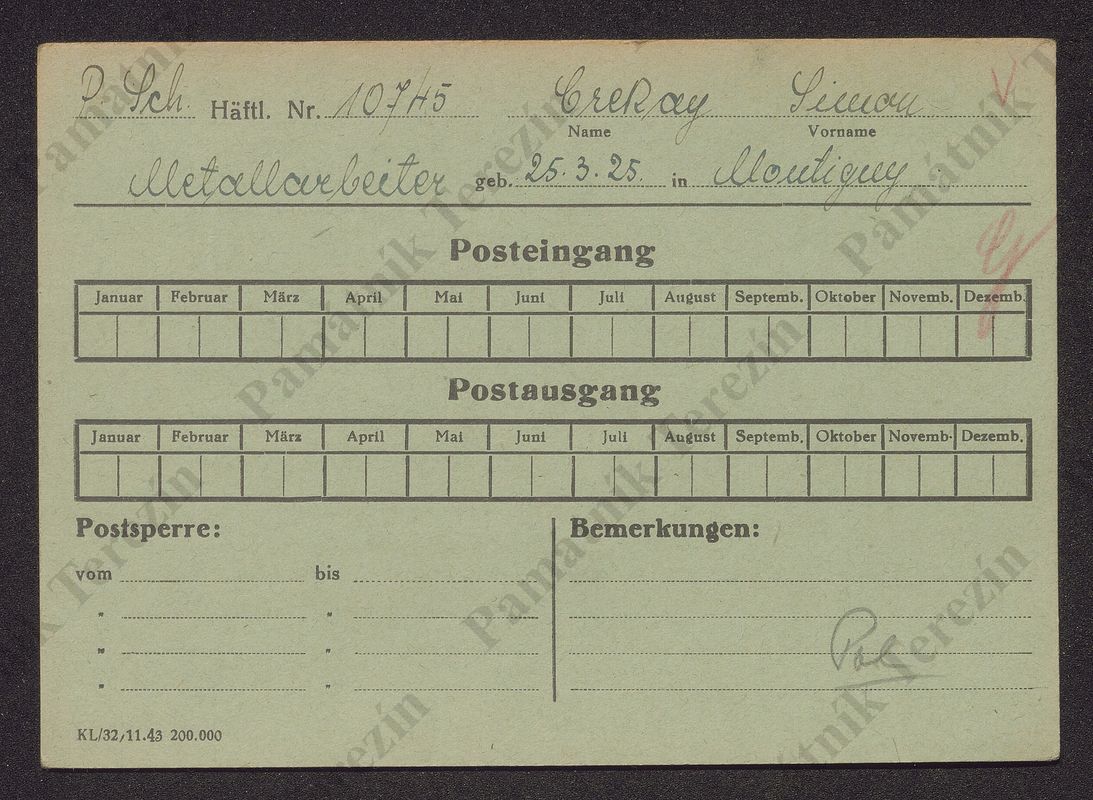 P. Sch. Häftl. Nr. 10745 Crekay Simon
Name Vorname
Metallarbeiter geb. 25.3.25. in Montigny
Posteingang
Januar Februar März April Mai Juni Juli August Septemb. Oktober Novemb. Dezemb.
Postausgang
Januar Februar März April Mai Juni Juli August Septemb. Oktober Novemb. Dezemb.
Postsperre: Bemerkungen:
vom bis
" "
" "
" "
Pol
KL/32/11.43 200.000
Památník Terezín